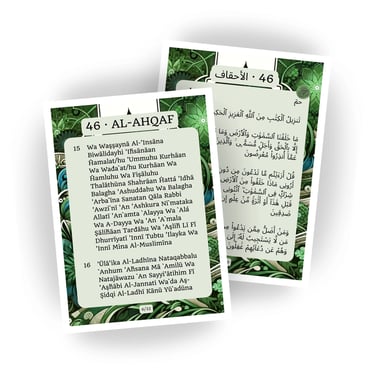 46 · AL-AHQAF
15 Wa Waşşaynā Al-'Insāna
Biwālidayhi 'Iĥsānāan
Ĥamalat/hu 'Ummuhu Kurhāan
Wa Wađa`at/hu Kurhāan Wa
Ĥamluhu Wa Fişāluhu
Thalāthūna Shahrāan Ĥattá 'Idhā
Balagha 'Ashuddahu Wa Balagha
'Arba`īna Sanatan Qāla Rabbi
'Awzi`nī 'An 'Ashkura Ni`mataka
Allatī 'An`amta `Alayya Wa `Alá
Wa A-Dayya Wa 'An 'A`mala
Şāliĥāan Tarđāhu Wa 'Aşliĥ Lī Fī
Dhurrīyatī 'Innī Tubtu 'Ilayka Wa
'Innī Mina Al-Muslimīna
16 'Ūlā'ika Al-Ladhīna Nataqabbalu
`Anhum 'Aĥsana Mā `Amilū Wa
Natajāwazu `An Sayyi'ātihim Fī
'Aşĥābi Al-Jannati Wa`da Aş-
Şidqi Al-Ladhī Kānū Yū`adūna
46 · الأحقاف
حمٓ
تَنزِيلُ ٱلْكِتَٰبِ مِنَ ٱللَّهِ ٱلْعَزِيزِ
مَا خَلَقْنَا ٱلسَّمَٰوَٰتِ وَٱلْأَرْضَ
إِلَّا بِٱلْحَقِّ وَأَجَلٍ مُّسَمًّى
عَمَّآ أُنذِرُوا۟ مُعْرِضُونَ
قُلْ أَرَءَيْتُم مَّا تَدْعُونَ
أَرُونِى مَاذَا خَلَقُوا۟
شِرْكٌ فِى ٱلسَّمَٰوَٰتِ
قَبْلِ هَٰذَآ أَوْ أَثَٰرَةٍ مِّنْ عِلْمٍ
صَٰدِقِينَ
وَمَنْ أَضَلُّ مِمَّن
مَن لَّا يَسْتَجِيبُ لَهُۥٓ
وَهُمْ عَن دُعَآئِهِمْ غَٰفِلُونَ